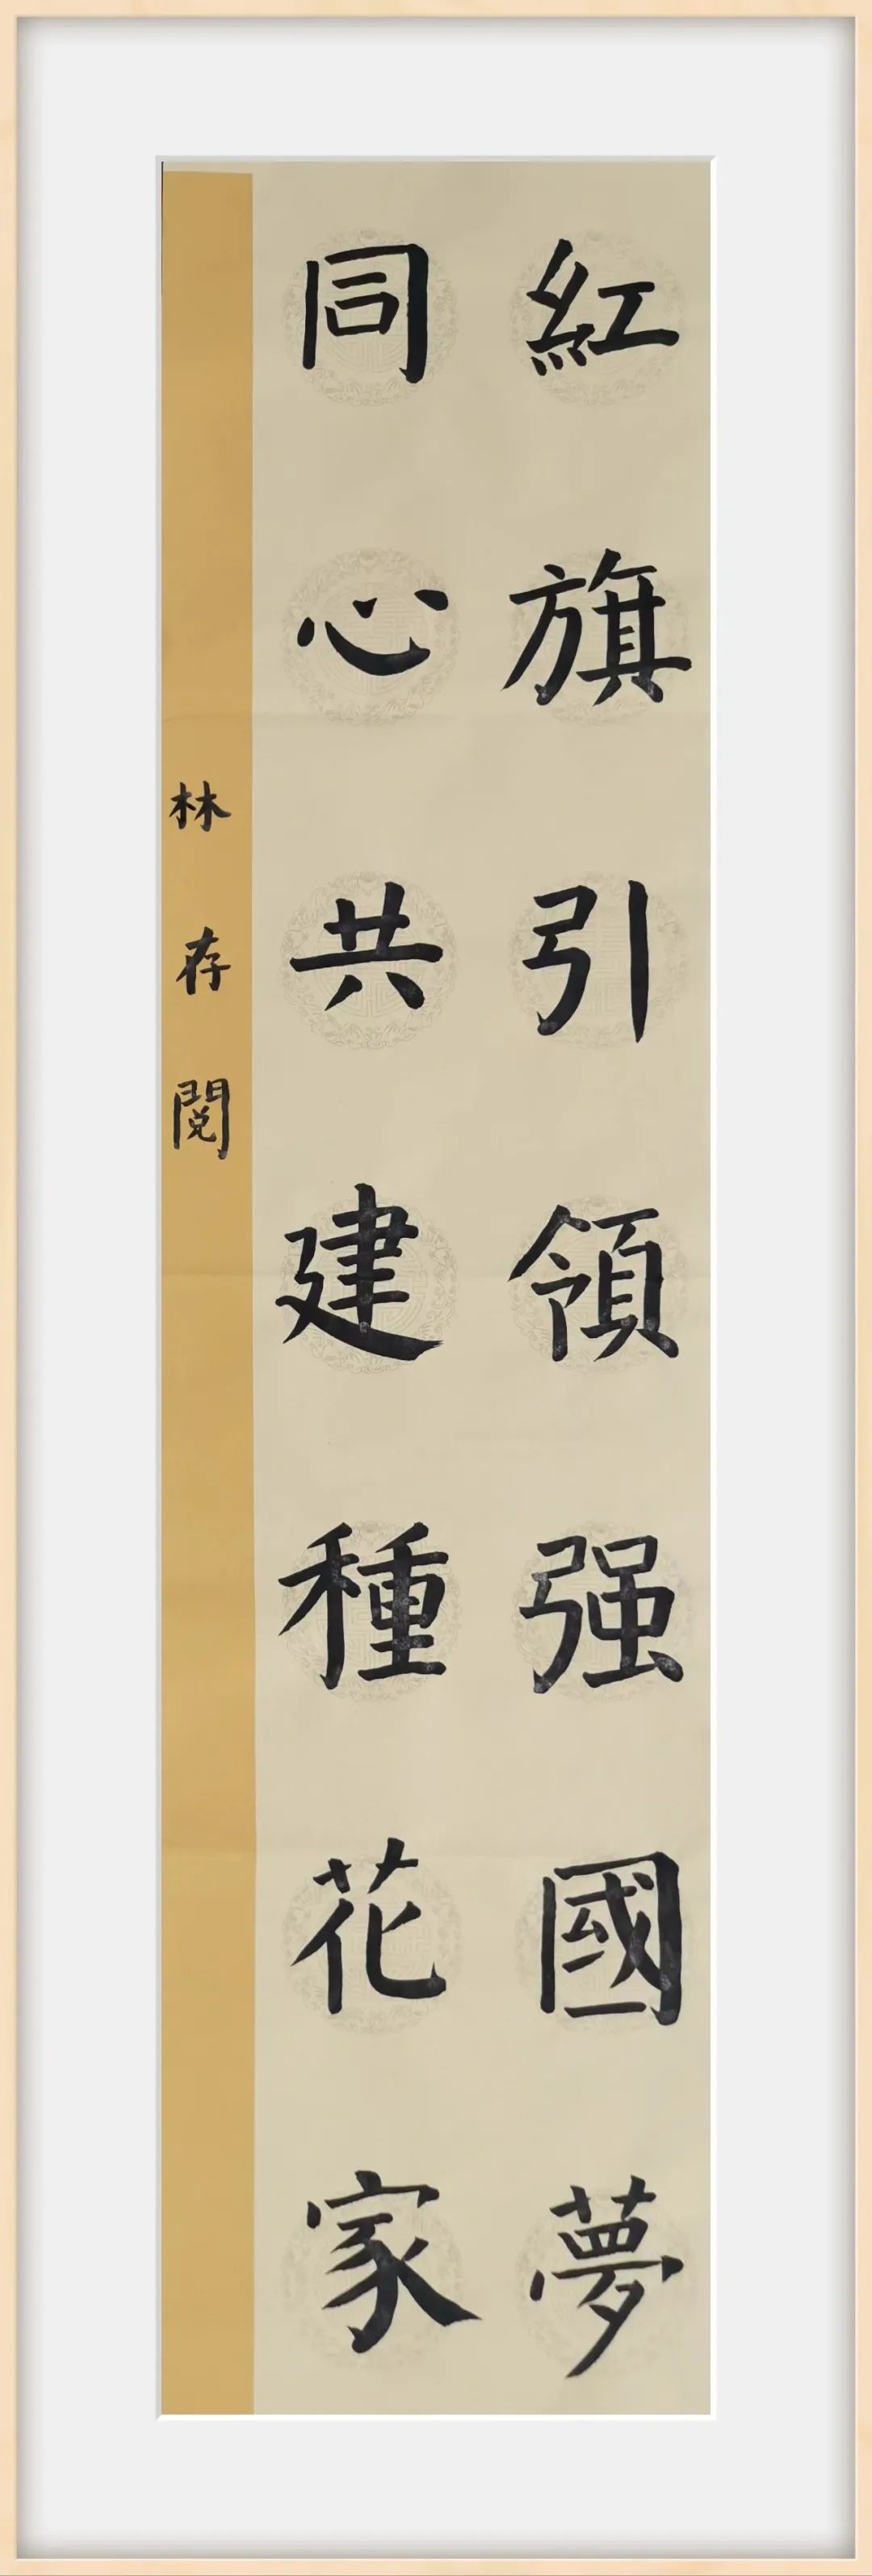 紅旗引領强國夢
同心共建種花家
林存閱